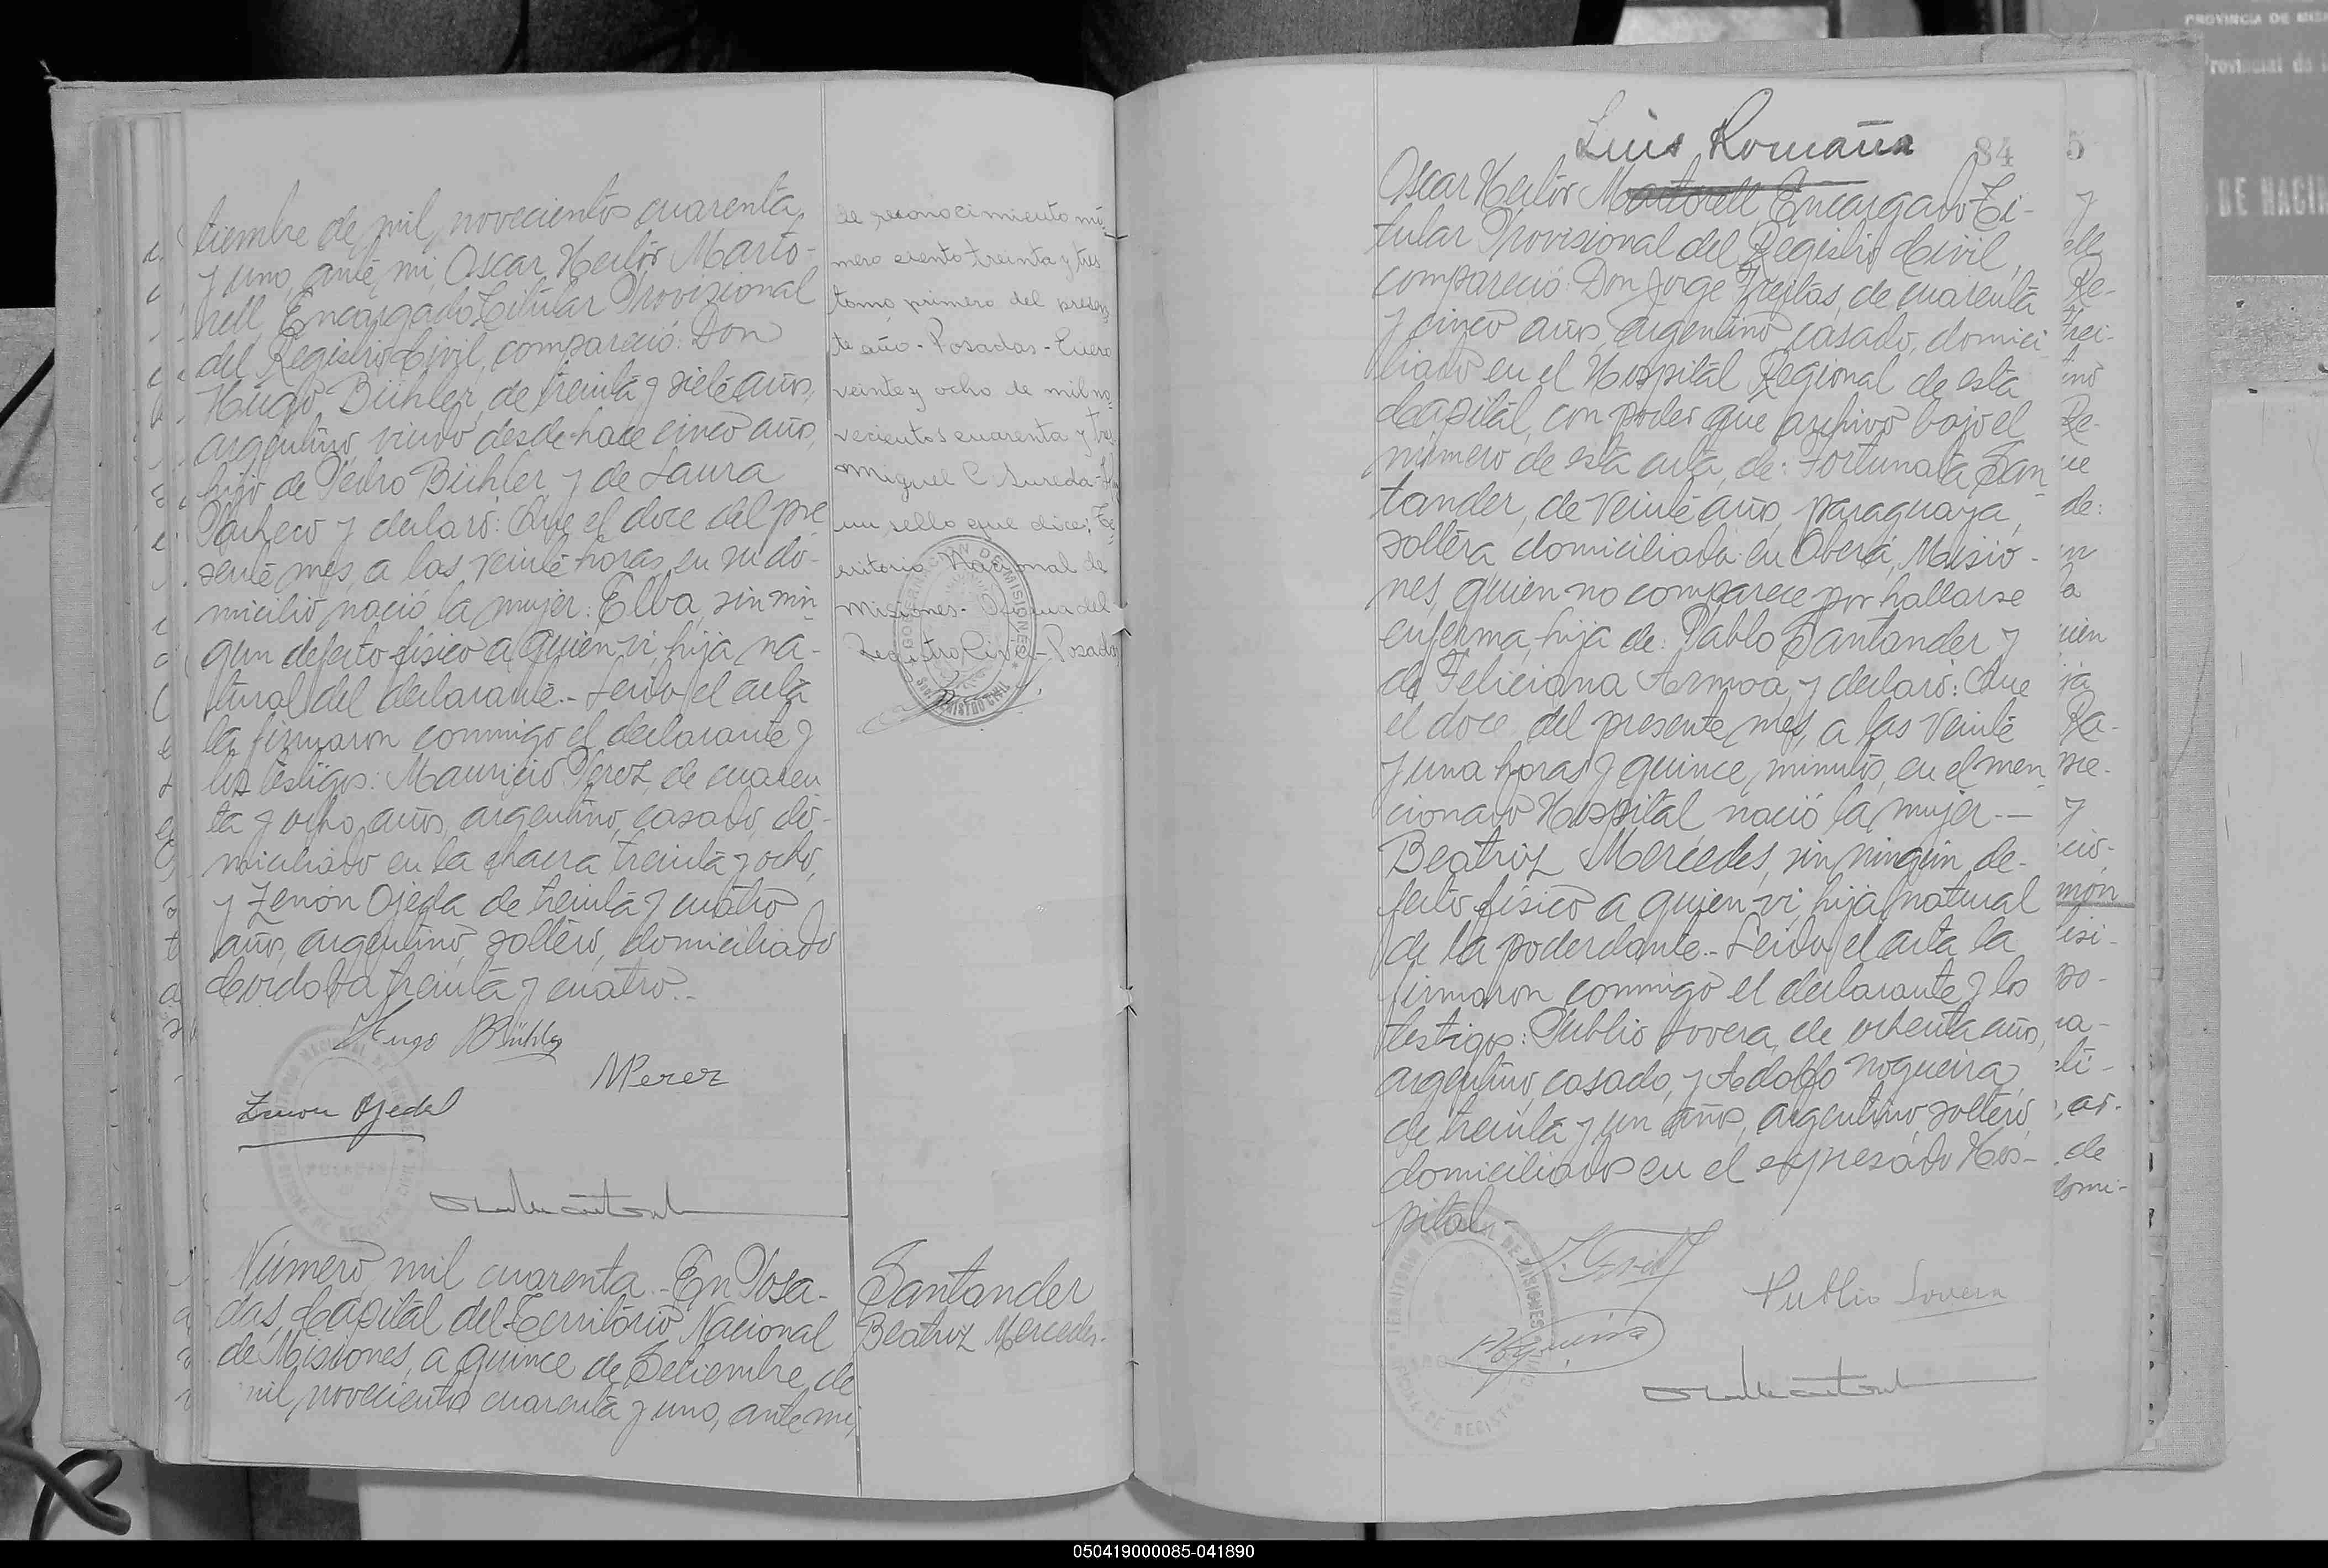 tiembre de mil novecientos cuarenta
y uno, ante mi, Oscar Heitor Marto-
rell, Encargado Titular Provisional
del Registro Civil, compareció: Don
Hugo Bühler, de treinta y siete años,
argentino, viudo desde hace cinco años,
hijo de Pedro Bühler y de Laura
Pacheco y declaró: Que el doce del pre
sente mes, a las veinte horas, en su do-
micilio nació la mujer: Elba, sin nin-
gun defecto físico a quien vi, hija na-
tural del declarante.- Leida el acta
la firmaron conmigo el declarante y
los testigos: Mauricio Perez, de cuaren
ta y ocho años, argentino, casado, do-
miciliado en la chacra treinta y ocho,
y Zenón Ojeda de treinta y cuatro
años, argentino, soltero, domiciliado
Cordoba treinta y cuatro.-
Hugo Bühler
M Perez
Zenon Ojeda
Número mil cuarenta.- En Posa-
das, Capital del Territorio Nacional
de Misiones, a quince de Setiembre de
mil novecientos cuarenta y uno, ante mi,
de reconocimiento nú-
mero ciento treinta y tres
tomo primero del presen
te año - Posadas - Enero
veinte y ocho de mil no-
vecientos cuarenta y tres
Miguel C. Sureda -
un sello que dice: Te-
rritorio Nacional de
Misiones - Oficina del
Registro Civil - Posadas
GOBERNACION DE MISIONES
REGISTRO CIVIL
Santander
Beatriz Mercedes.-
Luis Romaña
84
Oscar Heitor Martorell, Encargado Ti-
tular Provisional del Registro Civil,
compareció: Don Jorge Freitas, de cuarenta
y cinco años, argentino, casado, domici
liado en el Hospital Regional de esta
Capital, con poder que archivo bajo el
número de esta acta, de: Fortunata San-
tander, de veinte años, paraguaya,
soltera domiciliada en Oberá, Misio-
nes, quien no comparece por hallarse
enferma, hija de: Pablo Santander y
de Feliciana Armoa y declaró: Que
el doce del presente mes, a las veinte
y una horas y quince minutos, en el men
cionado Hospital nació la mujer --
Beatriz Mercedes, sin ningún de-
fecto físico a quien vi, hija natural
de la poderdante.- Leida el acta la
firmaron conmigo el declarante y los
testigos: Publio Lovera, de ochenta años,
argentino, casado, y Adolfo Nogueira,
de treinta y un años, argentino, soltero,
domiciliados en el expresado Hos-
pital.-
Publio Lovera
5
PROVINCIA DE MIS
Provincial de
DE NACI
050419000085-041890